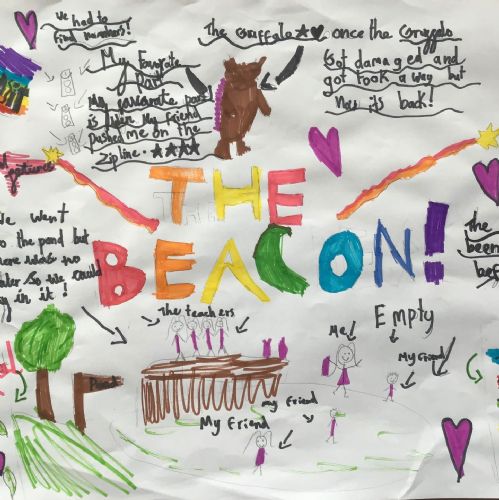 We had to
find numbers!
My Favorate
Part
My favourate part
is where my friend
pushed me on the
zipline.
The Gruffalo once the Gruffalo
Got damaged and
got took a way but
Now its back!
patience
THE
BEACON!
We want
o the pond but
ere was no
ater so we could
y in it!
The
been
best
The teachers
Empty
Me
My Friend
Pond
my friend
My friend